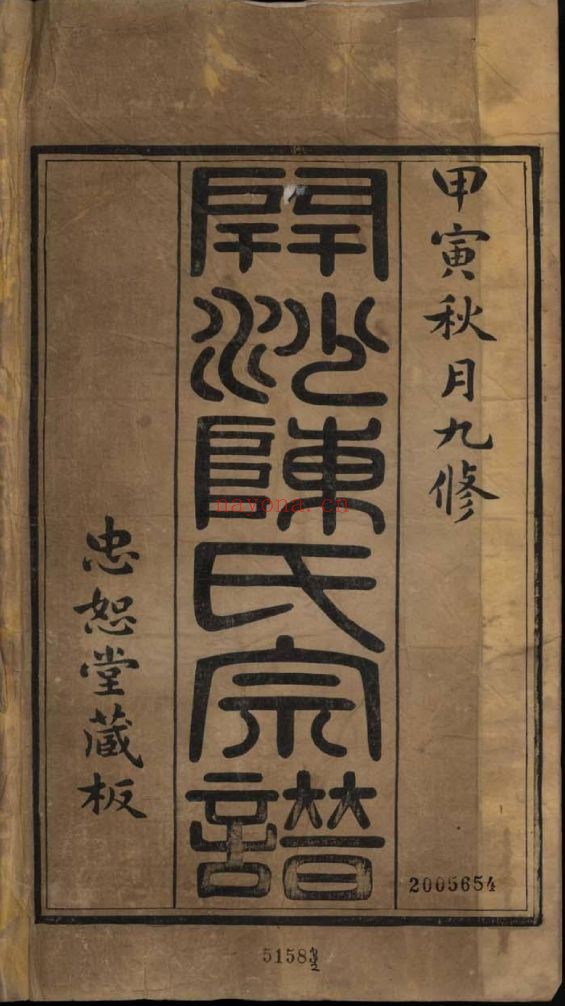 甲寅秋月九修
開沙陳氏宗譜
忠恕堂藏板
2005654
5158
nayona.cn